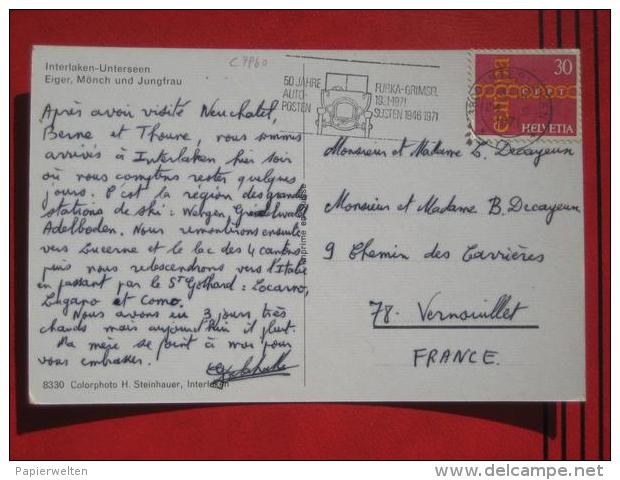 Interlaken-Unterseen
Eiger, Mönch und Jungfrau
C 7960
50 JAHRE
AUTO-
POSTEN
FURKA-GRIMSEL
1971
SUSTEN 1946 1971
30
europa
CEPT
HELVETIA
Après avoir visité Neuchatel,
Berne et Thoune, nous sommes
arrivés à Interlaken hier soir
où nous comptons rester quelques
jours. C'est la région des grandes
stations de ski : Wengen, Grindelwald
Adelboden. Nous remonterons ensuite
vers Lucerne et le lac des 4 cantons
puis nous redescendrons vers l'Italie
en passant par le St Gothard : Locarno,
Lugano et Como.
Nous avons eu 3 jours très
chauds mais aujourd'hui il pleut.
Ma mère se joint à moi pour
vous embrasser.
8330 Colorphoto H. Steinhauer, Interlaken
Imprimé en Suisse
Monsieur et Madame L. Decayeux
Monsieur et Madame B. Decayeux
9 Chemin des Carrières
78. Vernouillet
FRANCE.
Papierwelten
© delcampe.net